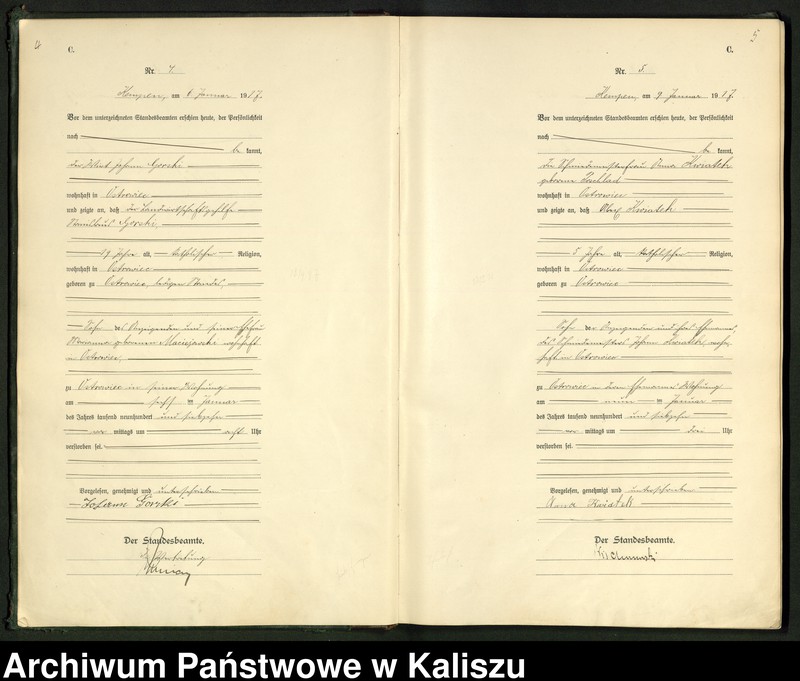 4
C.
Nr. 4.
Kempen, am 6 Januar 1917.
Vor dem unterzeichneten Standesbeamten erschien heute, der Persönlichkeit
nach
be kannt,
der Johann Gorski
wohnhaft in Ostrowiec
und zeigte an, daß der Landwirtschaftsgehilfe
Stanislaus Gorski,
19 Jahre alt, katholischer Religion,
wohnhaft in Ostrowiec
geboren zu Ostrowiec, ledigen Standes,
Sohn des Anzeigenden und seiner Ehefrau
Marianna geborenen wohnhaft
in Ostrowiec,
zu Ostrowiec in seiner Wohnung
am sechs ten Januar
des Jahres tausend neunhundert und siebzehn
vor mittags um acht Uhr
verstorben sei.
Vorgelesen, genehmigt und unterschrieben
Gorski
Der Standesbeamte.
In Vertretung
5
C.
Nr. 5.
Kempen, am 9 Januar 1917.
Vor dem unterzeichneten Standesbeamten erschien heute, der Persönlichkeit
nach
be kannt,
die Schmiedemeisterfrau Anna Kwiatek
geborene
wohnhaft in Ostrowiec
und zeigte an, daß Kwiatek
5 Jahre alt, katholischer Religion,
wohnhaft in Ostrowiec
geboren zu Ostrowiec
Sohn der Anzeigenden und ihres Ehemannes,
des Schmiedemeisters Johann Kwiatek, wohn-
haft in Ostrowiec
zu Ostrowiec in ihrer Wohnung
am neun ten Januar
des Jahres tausend neunhundert und siebzehn
vor mittags um drei Uhr
verstorben sei.
Vorgelesen, genehmigt und unterschrieben
Anna Kwiatek
Der Standesbeamte.
Archiwum Państwowe w Kaliszu